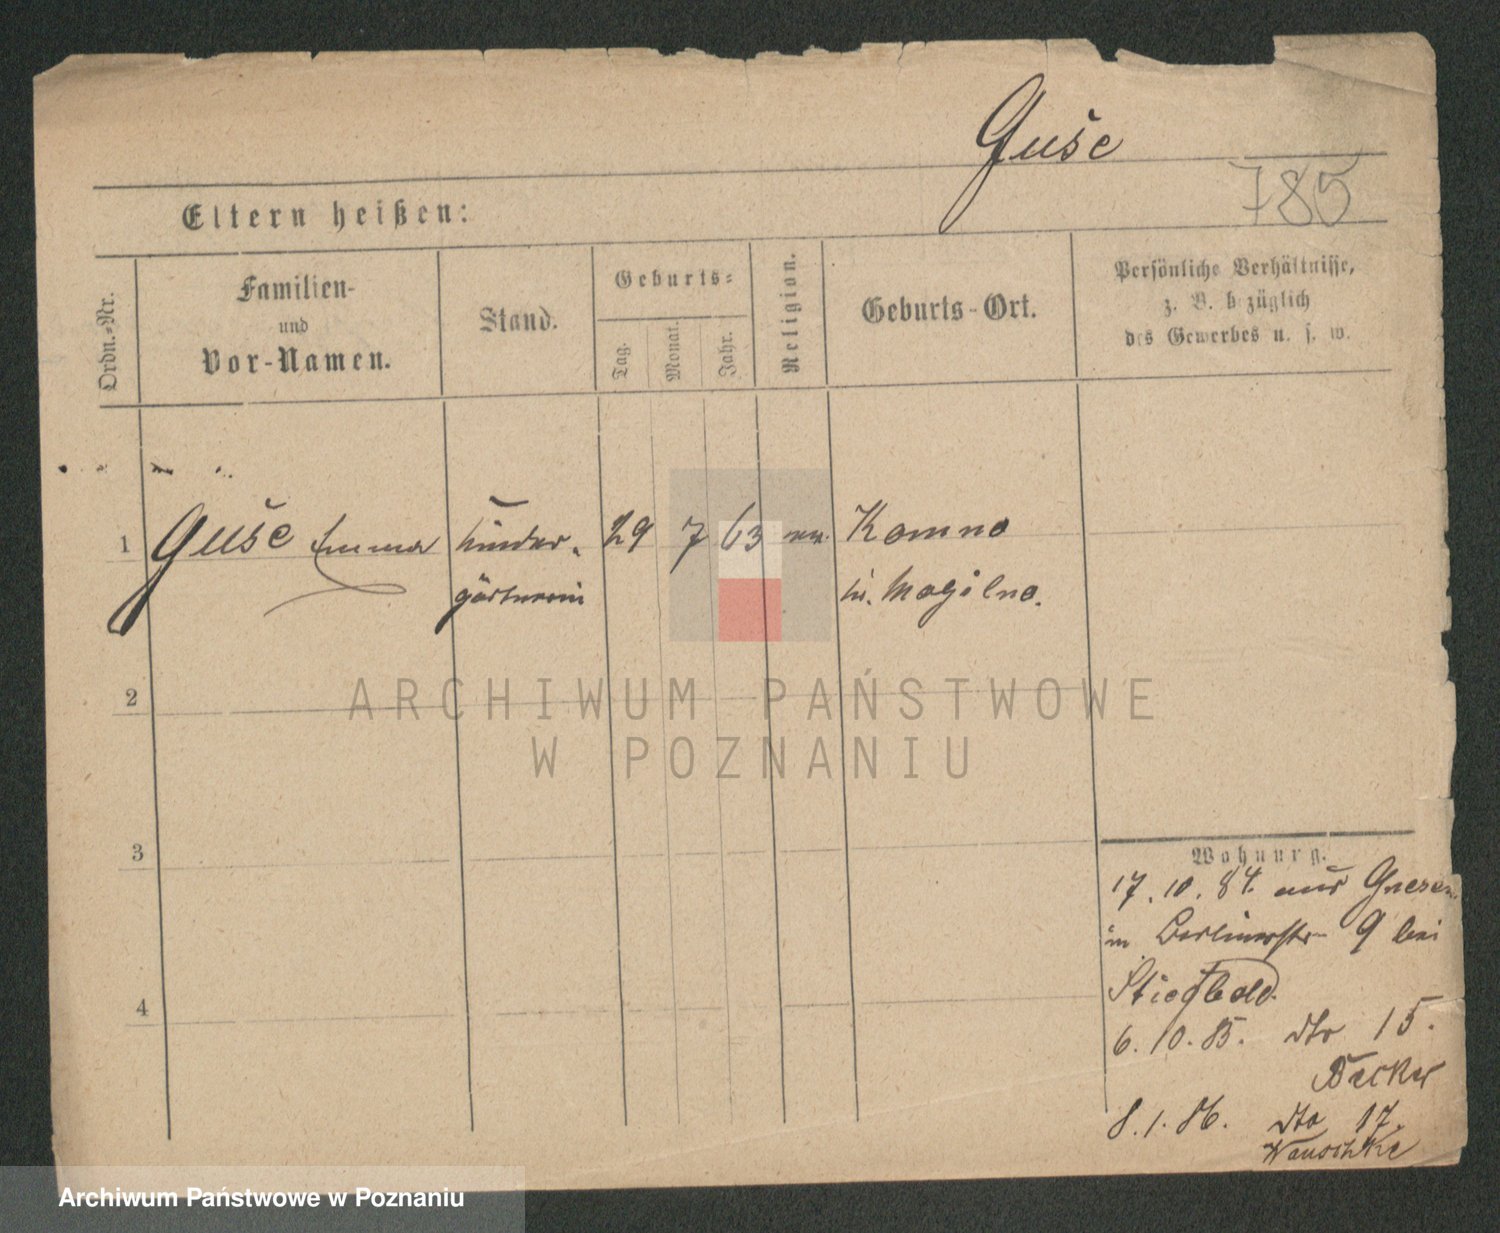 Guse
785
Eltern heißen:
Ordn.-Nr.
Familien-
und
Vor-Namen.
Stand.
Geburts-
Tag.
Monat.
Jahr.
Religion.
Geburts-Ort.
Persönliche Verhältnisse,
z. B. bezüglich
des Gewerbes u. s. w.
1 Guse Emma Kinder- 29 7 63 ev. Kamno
gärtnerin in Mogilno.
2
3
4
Wohnung.
17. 10. 84. aus Gnesen
in Berlinerstr 9 bei
6. 10. 85. dto 15.
Becker
8. 1. 86. dto 17.
Wauschke
ARCHIWUM PAŃSTWOWE
W POZNANIU
Archiwum Państwowe w Poznaniu